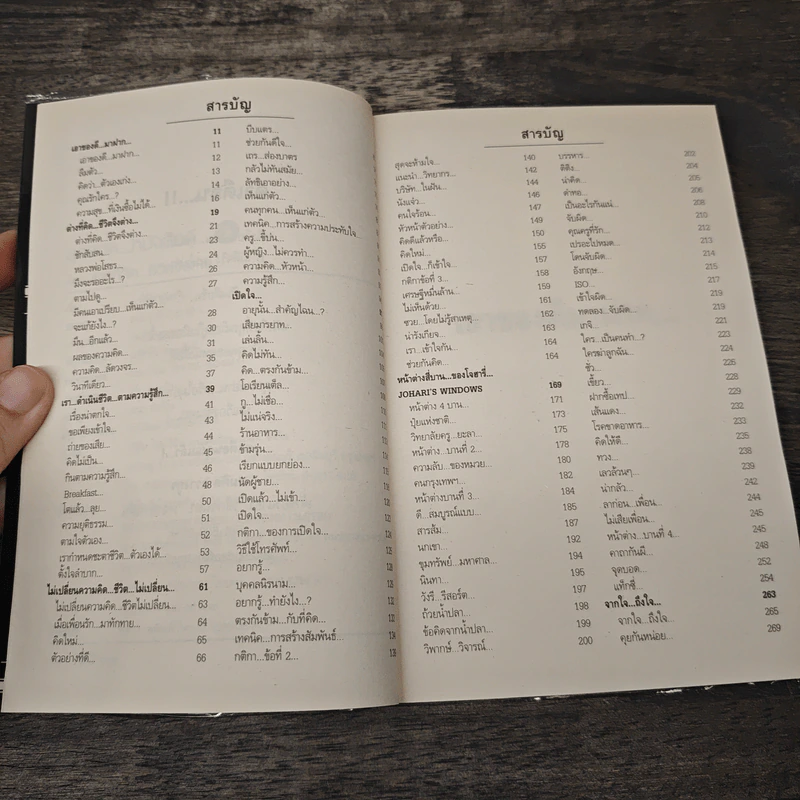 สารบัญ
เอาของดี...มาฝาก... 11
เอาของดี...มาฝาก... 11
ลืมตัว... 12
คิดว่า...ตัวเองเก่ง... 13
คุณรักใคร...? 14
ความสุข...ที่เงินซื้อไม่ได้... 16
ต่างที่คิด...ชีวิตจึงต่าง... 19
ต่างที่คิด...ชีวิตจึงต่าง... 21
ซักสับสน... 23
หลวงพ่อโสธร... 24
มึงจะรออะไร...? 26
ตามไปดู... 27
มีคนเอาเปรียบ...เห็นแก่ตัว...
จะแก้ยังไง...? 28
มัน...อีกแล้ว... 30
ผลของความคิด... 31
ความคิด...ลัดวงจร... 35
วินาทีเดียว... 37
เรา...ดำเนินชีวิต...ตามความรู้สึก... 39
เรื่องน่าตกใจ... 41
ขอเพียงเข้าใจ... 43
ถ่ายของเสีย... 44
คิดไม่เป็น... 45
กินตามความรู้สึก... 46
Breakfast... 48
โตแล้ว...ลุย... 50
ความยุติธรรม... 51
ตามใจตัวเอง...
เรากำหนดชะตาชีวิต...ตัวเองได้... 53
ตั้งใจลำบาก... 57
ไม่เปลี่ยนความคิด...ชีวิต...ไม่เปลี่ยน... 61
ไม่เปลี่ยนความคิด...ชีวิตไม่เปลี่ยน... 63
เมื่อเพื่อนรัก...มาทักทาย... 64
คิดใหม่... 65
ตัวอย่างที่ดี... 66
บีบแตร...
ช่วยกันดีใจ...
เถร...ส่องบาตร
กลัวไม่ทันสมัย...
ลัทธิเอาอย่าง...
เห็นแก่ตัว...
คนทุกคน...เห็นแก่ตัว...
เทคนิค...การสร้างความประทับใจ
ครู...ขี้บ่น...
ผู้หญิง...ไม่ควรทำ...
ความคิด...หัวหน้า...
ความรู้สึก...
เปิดใจ...
อายุนั้น...สำคัญไฉน...?
เสียมารยาท...
เล่นลิ้น...
คิดไม่ทัน...
คิด...ตรงกันข้าม...
โอเรียนเต็ล...
กู...ไม่เชื่อ...
ไม่แน่จริง...
ร้านอาหาร...
ข้ามรุ่น...
เรียกแบบยกย่อง...
นัดผู้ชาย...
เปิดแล้ว...ไม่เข้า...
เปิดใจ...
กติกา...ของการเปิดใจ...
วิธีใช้โทรศัพท์...
อยากรู้...
บุคคลนิรนาม...
อยากรู้...ทำยังไง...?
ตรงกันข้าม...กับที่คิด...
เทคนิค...การสร้างสัมพันธ์...
กติกา...ข้อที่ 2...
สารบัญ
สุดจะห้ามใจ... 140
แนะนำ...วิทยากร... 142
บริษัท...ในฝัน... 144
นังแจ๋ว... 146
คนใจร้อน... 147
หัวหน้าตัวอย่าง... 149
คิดดีแล้วหรือ... 150
คิดใหม่... 155
เปิดใจ...ก็เข้าใจ... 157
กติกาข้อที่ 3... 158
เศรษฐีหมื่นล้าน... 159
ไม่เห็นด้วย... 161
ซวย...โดยไม่รู้สาเหตุ... 162
น่ารังเกียจ... 163
เรา...เข้าใจกัน... 164
ช่วยกันคิด... 164
หน้าต่างสี่บาน...ของโจฮารี่...
JOHARI'S WINDOWS 169
หน้าต่าง 4 บาน... 171
ปุ๋ยแห่งชาติ... 173
วิทยาลัยครู...ยะลา... 175
หน้าต่าง...บานที่ 2... 178
ความลับ...ของหมวย... 180
คนกรุงเทพฯ... 182
หน้าต่างบานที่ 3... 184
ดี...สมบูรณ์แบบ... 185
สารส้ม... 187
นกเขา... 192
ขุมทรัพย์...มหาศาล... 194
นินทา... 195
วังรี...รีสอร์ต... 197
ถ้วยน้ำปลา... 198
ข้อคิดจากน้ำปลา... 199
วิพากษ์...วิจารณ์... 200
บรรหาร... 202
ดีดิ่ง... 204
น่าคิด... 205
ด่าพ่อ... 206
เป็นอะไรกันแน่... 208
จับผิด... 210
คุณครูที่รัก... 212
เปรอะไปหมด... 213
โดนจับผิด... 214
อังกฤษ... 215
ISO... 217
เข้าใจผิด... 219
ทดลอง...จับผิด... 219
เกจิ... 221
ใคร...เป็นคนทำ...? 223
ใครฆ่าลูกฉัน... 224
ชั่ว... 226
เขี้ยว... 228
ฝากซื้อเทป... 229
เส้นแดง... 232
โรคขาดอาหาร... 233
คิดให้ดี... 235
ทวง... 238
เลวล้วนๆ... 239
น่ากลัว... 242
ลาก่อน...เพื่อน... 244
ไม่เสียเพื่อน... 245
หน้าต่าง...บานที่ 4... 245
คาถากันผี... 248
จุดบอด... 252
แท็กซี่... 254
จากใจ...ถึงใจ... 263
จากใจ...ถึงใจ... 265
คุยกันหน่อย... 269